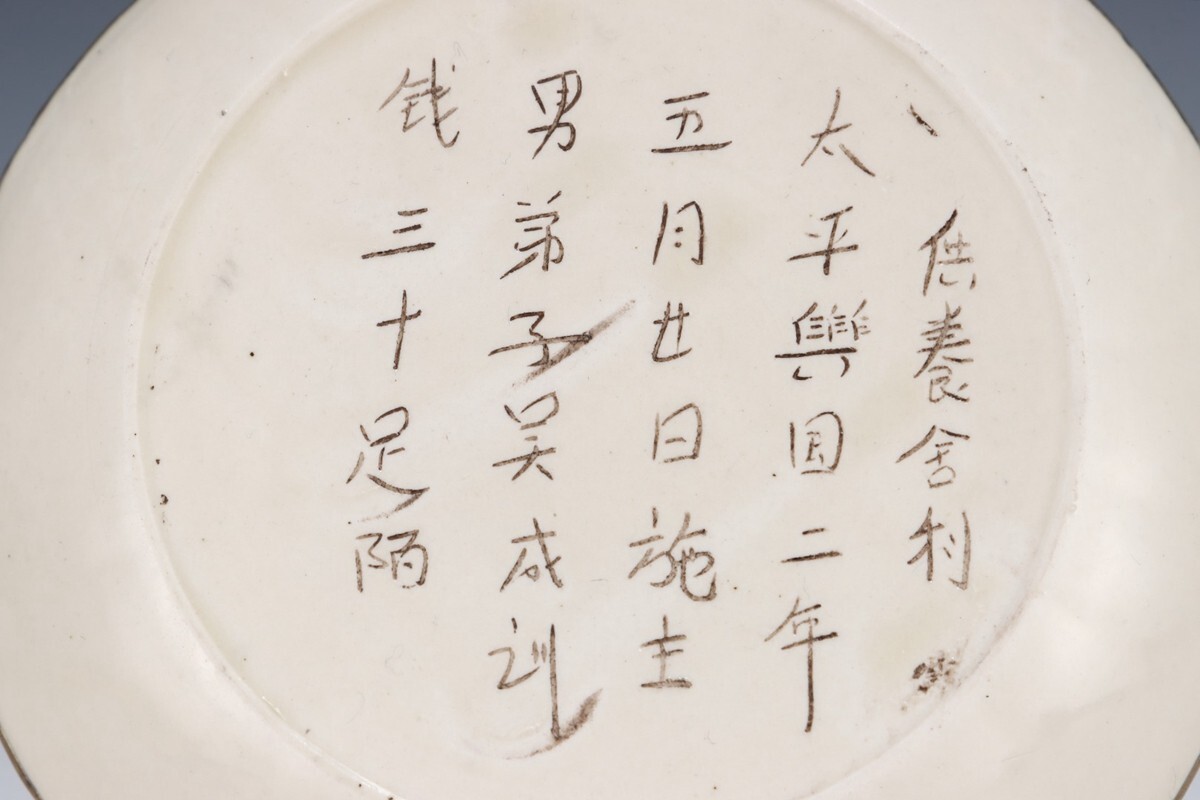 供養舍利
太平興国二年
五月廿日施主
男弟子吴成训
钱三十足陌